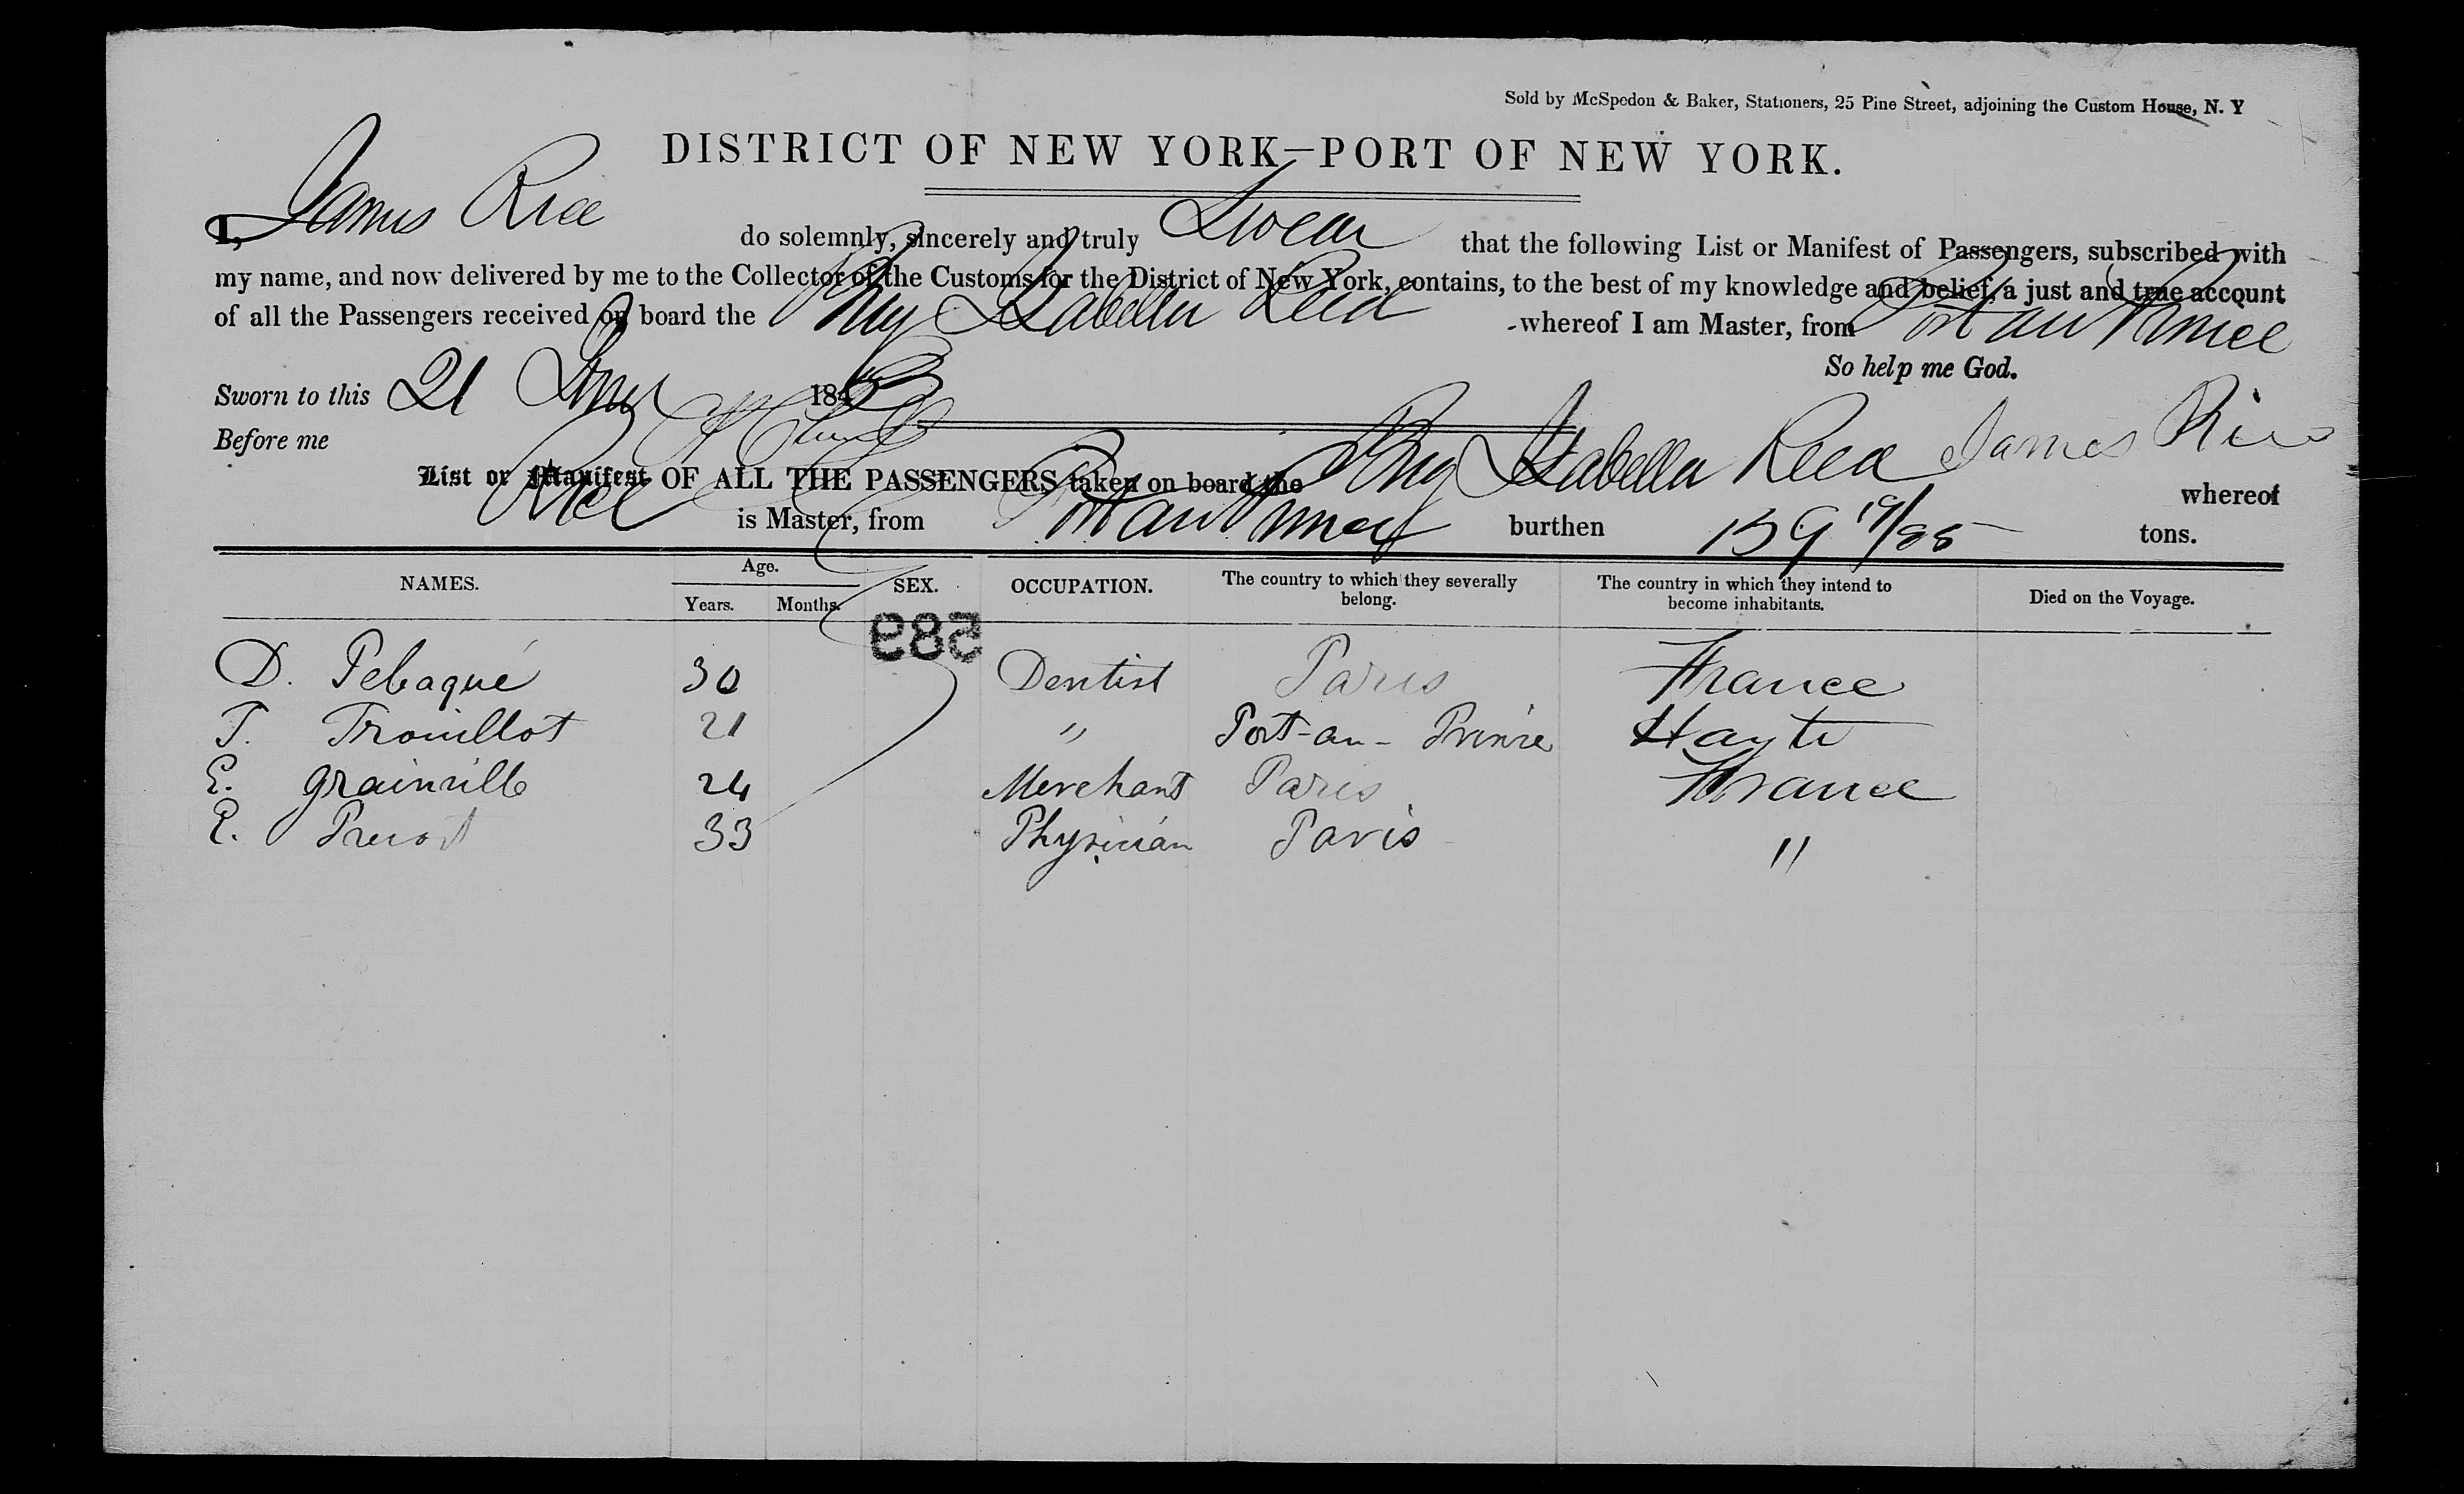 Sold by McSpedon & Baker, Stationers, 25 Pine Street, adjoining the Custom House, N. Y
DISTRICT OF NEW YORK—PORT OF NEW YORK.
I, James Rice do solemnly, sincerely and truly Swear that the following List or Manifest of Passengers, subscribed with
my name, and now delivered by me to the Collector of the Customs for the District of New York, contains, to the best of my knowledge and belief, a just and true account
of all the Passengers received on board the Brig Isabella Reed whereof I am Master, from Port au Prince
So help me God.
Sworn to this 21 185
Before me James Rice
List or Manifest OF ALL THE PASSENGERS taken on board the Brig Isabella Reed whereof
Rice is Master, from Port au Prince burthen 159 19/95 tons.
NAMES. Age. Years. Months. SEX. OCCUPATION. The country to which they severally belong. The country in which they intend to become inhabitants. Died on the Voyage.
589
D. Pebaqué 30 Dentist Paris France
T. Trouillot 21 " Port-au-Prince Hayti
E. Grainville 24 Merchant Paris France
E. Prevost 33 Physician Paris "